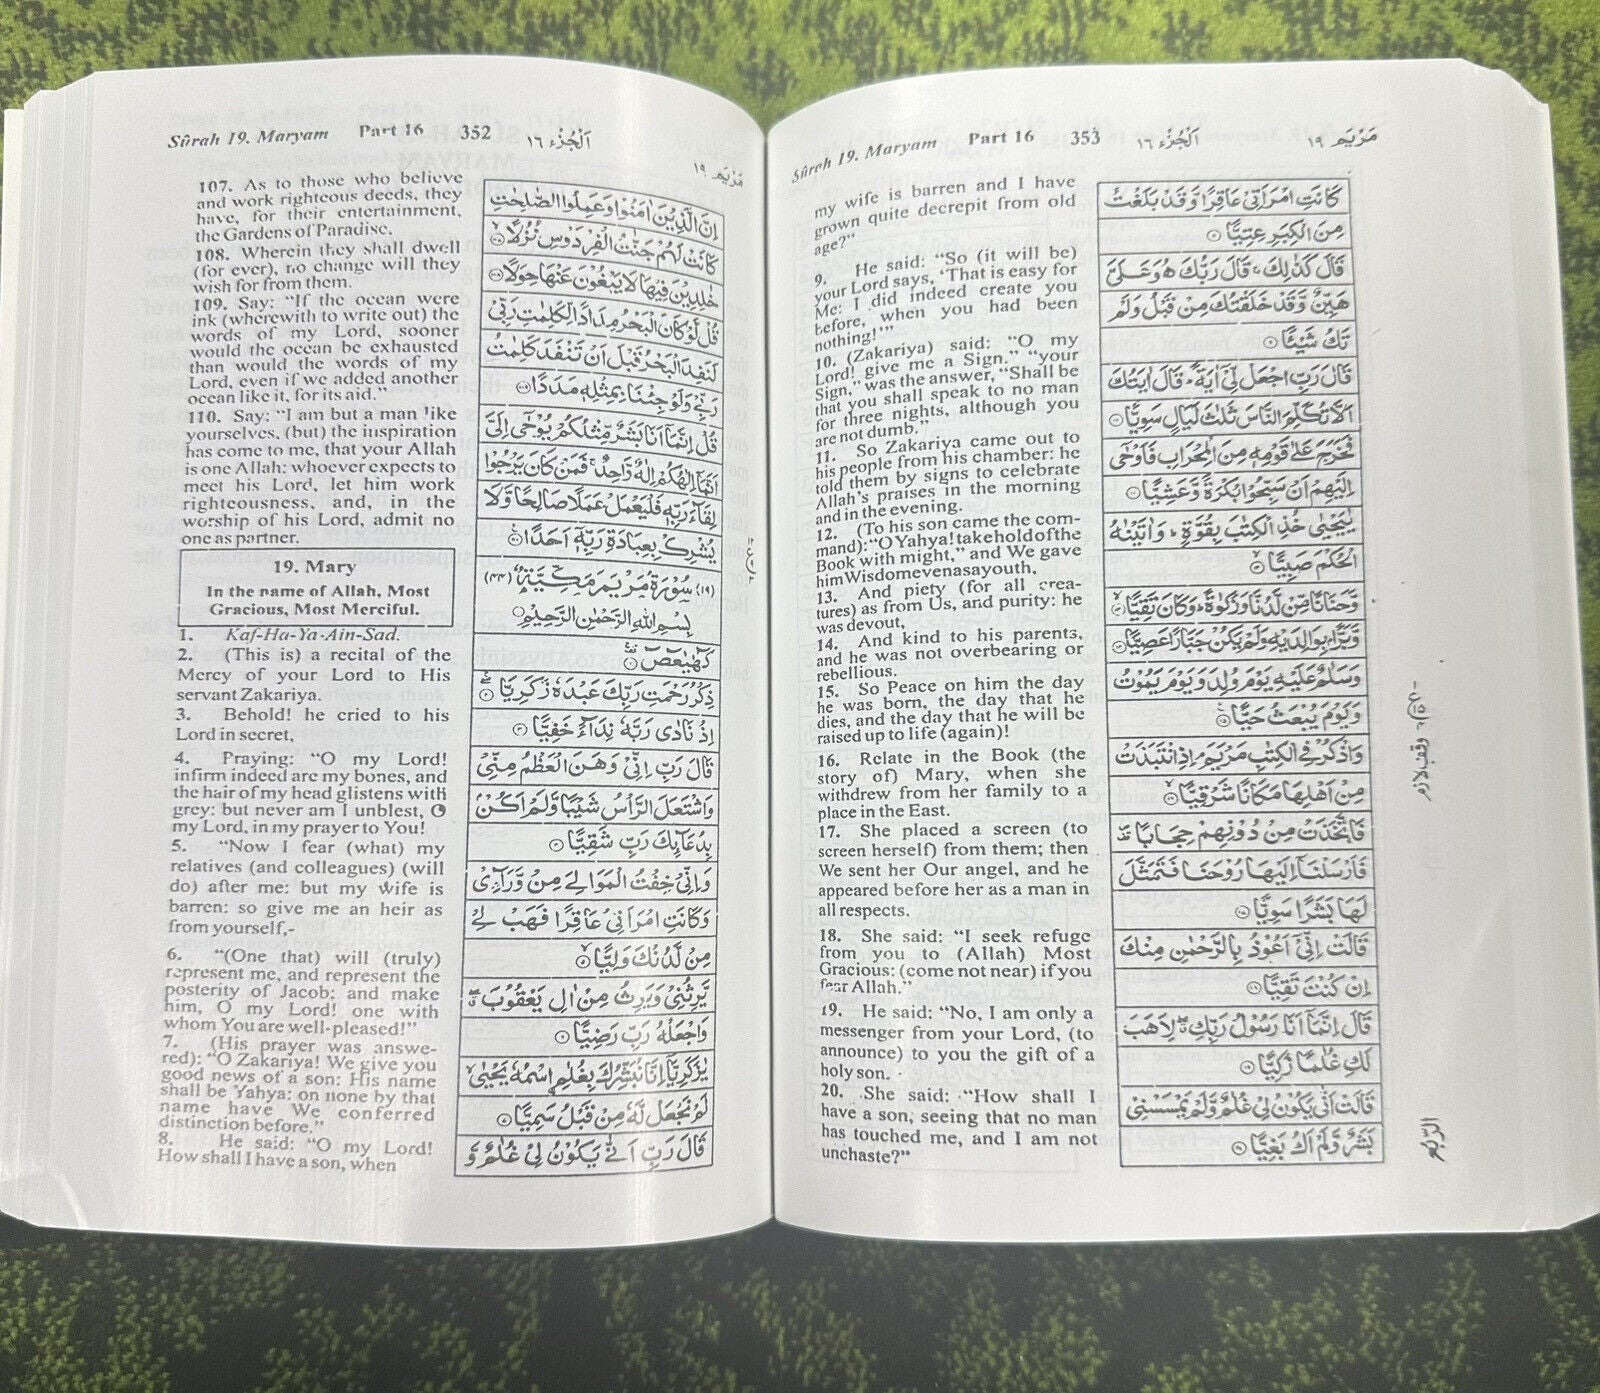 Sûrah 19. Maryam Part 16 352 اَلْجُزْء ١٦ مَرْيَم ١٩
107. As to those who believe
and work righteous deeds, they
have, for their entertainment,
the Gardens of Paradise.
108. Wherein they shall dwell
(for ever), no change will they
wish for from them.
109. Say: “If the ocean were
ink (wherewith to write out) the
words of my Lord, sooner
would the ocean be exhausted
than would the words of my
Lord, even if we added another
ocean like it, for its aid.”
110. Say: “I am but a man like
yourselves, (but) the inspiration
has come to me, that your Allah
is one Allah: whoever expects to
meet his Lord, let him work
righteousness, and, in the
worship of his Lord, admit no
one as partner.
19. Mary
In the name of Allah, Most
Gracious, Most Merciful.
1. Kaf-Ha-Ya-Ain-Sad.
2. (This is) a recital of the
Mercy of your Lord to His
servant Zakariya.
3. Behold! he cried to his
Lord in secret,
4. Praying: “O my Lord!
infirm indeed are my bones, and
the hair of my head glistens with
grey: but never am I unblest, O
my Lord, in my prayer to You!
5. “Now I fear (what) my
relatives (and colleagues) (will
do) after me: but my wife is
barren: so give me an heir as
from yourself,-
6. “(One that) will (truly)
represent me, and represent the
posterity of Jacob; and make
him, O my Lord! one with
whom You are well-pleased!”
7. (His prayer was answe-
red): “O Zakariya! We give you
good news of a son: His name
shall be Yahya: on none by that
name have We conferred
distinction before.”
8. He said: “O my Lord!
How shall I have a son, when
اِنَّ الَّذِيْنَ اٰمَنُوْا وَعَمِلُوا الصّٰلِحٰتِ
كَانَتْ لَهُمْ جَنّٰتُ الْفِرْدَوْسِ نُزُلًا ۝
خٰلِدِيْنَ فِيْهَا لَا يَبْغُوْنَ عَنْهَا حِوَلًا ۝
قُلْ لَّوْ كَانَ الْبَحْرُ مِدَادًا لِّكَلِمٰتِ رَبِّيْ
لَنَفِدَ الْبَحْرُ قَبْلَ اَنْ تَنْفَدَ كَلِمٰتُ
رَبِّيْ وَلَوْ جِئْنَا بِمِثْلِهٖ مَدَدًا ۝
قُلْ اِنَّمَاۤ اَنَا بَشَرٌ مِّثْلُكُمْ يُوْحٰۤى اِلَيَّ
اَنَّمَاۤ اِلٰهُكُمْ اِلٰهٌ وَّاحِدٌ ۚ فَمَنْ كَانَ يَرْجُوْا
لِقَآءَ رَبِّهٖ فَلْيَعْمَلْ عَمَلًا صَالِحًا وَّلَا
يُشْرِكْ بِعِبَادَةِ رَبِّهٖۤ اَحَدًا ۝
(١٩) سُوْرَةُ مَرْيَمَ مَكِّيَّةٌ (٤٤)
بِسْمِ اللّٰهِ الرَّحْمٰنِ الرَّحِيْمِ
كٓهٰيٰعٓصٓ ۝
ذِكْرُ رَحْمَتِ رَبِّكَ عَبْدَهٗ زَكَرِيَّا ۝
اِذْ نَادٰى رَبَّهٗ نِدَآءً خَفِيًّا ۝
قَالَ رَبِّ اِنِّيْ وَهَنَ الْعَظْمُ مِنِّيْ
وَاشْتَعَلَ الرَّاْسُ شَيْبًا وَّلَمْ اَكُنْۢ
بِدُعَآئِكَ رَبِّ شَقِيًّا ۝
وَاِنِّيْ خِفْتُ الْمَوَالِيَ مِنْ وَّرَآءِيْ
وَكَانَتِ امْرَاَتِيْ عَاقِرًا فَهَبْ لِيْ
مِنْ لَّدُنْكَ وَلِيًّا ۝
يَّرِثُنِيْ وَيَرِثُ مِنْ اٰلِ يَعْقُوْبَ
وَاجْعَلْهُ رَبِّ رَضِيًّا ۝
يٰزَكَرِيَّاۤ اِنَّا نُبَشِّرُكَ بِغُلٰمِ ۨاسْمُهٗ يَحْيٰى
لَمْ نَجْعَلْ لَّهٗ مِنْ قَبْلُ سَمِيًّا ۝
قَالَ رَبِّ اَنّٰى يَكُوْنُ لِيْ غُلٰمٌ وَّ
Sûrah 19. Maryam Part 16 353 اَلْجُزْء ١٦ مَرْيَم ١٩
my wife is barren and I have
grown quite decrepit from old
age?”
9. He said: “So (it will be)
your Lord says, ‘That is easy for
Me: I did indeed create you
before, when you had been
nothing!’”
10. (Zakariya) said: “O my
Lord! give me a Sign.” “your
Sign,” was the answer, “Shall be
that you shall speak to no man
for three nights, although you
are not dumb.”
11. So Zakariya came out to
his people from his chamber: he
told them by signs to celebrate
Allah’s praises in the morning
and in the evening.
12. (To his son came the com-
mand): “O Yahya! take hold of the
Book with might,” and We gave
him Wisdom even as a youth,
13. And piety (for all crea-
tures) as from Us, and purity: he
was devout,
14. And kind to his parents,
and he was not overbearing or
rebellious.
15. So Peace on him the day
he was born, the day that he
dies, and the day that he will be
raised up to life (again)!
16. Relate in the Book (the
story of) Mary, when she
withdrew from her family to a
place in the East.
17. She placed a screen (to
screen herself) from them; then
We sent her Our angel, and he
appeared before her as a man in
all respects.
18. She said: “I seek refuge
from you to (Allah) Most
Gracious: (come not near) if you
fear Allah.”
19. He said: “No, I am only a
messenger from your Lord, (to
announce) to you the gift of a
holy son.
20. She said: “How shall I
have a son, seeing that no man
has touched me, and I am not
unchaste?”
كَانَتِ امْرَاَتِيْ عَاقِرًا وَّقَدْ بَلَغْتُ
مِنَ الْكِبَرِ عِتِيًّا ۝
قَالَ كَذٰلِكَ ۚ قَالَ رَبُّكَ هُوَ عَلَيَّ
هَيِّنٌ وَّقَدْ خَلَقْتُكَ مِنْ قَبْلُ وَلَمْ
تَكُ شَيْئًا ۝
قَالَ رَبِّ اجْعَلْ لِّيْۤ اٰيَةً ؕ قَالَ اٰيَتُكَ
اَلَّا تُكَلِّمَ النَّاسَ ثَلٰثَ لَيَالٍ سَوِيًّا ۝
فَخَرَجَ عَلٰى قَوْمِهٖ مِنَ الْمِحْرَابِ فَاَوْحٰۤى
اِلَيْهِمْ اَنْ سَبِّحُوْا بُكْرَةً وَّعَشِيًّا ۝
يٰيَحْيٰى خُذِ الْكِتٰبَ بِقُوَّةٍ ؕ وَاٰتَيْنٰهُ
الْحُكْمَ صَبِيًّا ۝
وَّحَنَانًا مِّنْ لَّدُنَّا وَزَكٰوةً ؕ وَكَانَ تَقِيًّا ۝
وَّبَرًّۢا بِوَالِدَيْهِ وَلَمْ يَكُنْ جَبَّارًا عَصِيًّا ۝
وَسَلٰمٌ عَلَيْهِ يَوْمَ وُلِدَ وَيَوْمَ يَمُوْتُ
وَيَوْمَ يُبْعَثُ حَيًّا ۝
وَاذْكُرْ فِي الْكِتٰبِ مَرْيَمَ ۘ اِذِ انْتَبَذَتْ
مِنْ اَهْلِهَا مَكَانًا شَرْقِيًّا ۝
فَاتَّخَذَتْ مِنْ دُوْنِهِمْ حِجَابًا
فَاَرْسَلْنَاۤ اِلَيْهَا رُوْحَنَا فَتَمَثَّلَ
لَهَا بَشَرًا سَوِيًّا ۝
قَالَتْ اِنِّيْۤ اَعُوْذُ بِالرَّحْمٰنِ مِنْكَ
اِنْ كُنْتَ تَقِيًّا ۝
قَالَ اِنَّمَاۤ اَنَا رَسُوْلُ رَبِّكِ لِاَهَبَ
لَكِ غُلٰمًا زَكِيًّا ۝
قَالَتْ اَنّٰى يَكُوْنُ لِيْ غُلٰمٌ وَّلَمْ يَمْسَسْنِيْ
بَشَرٌ وَّلَمْ اَكُ بَغِيًّا ۝
وقف لازم
الرّبع